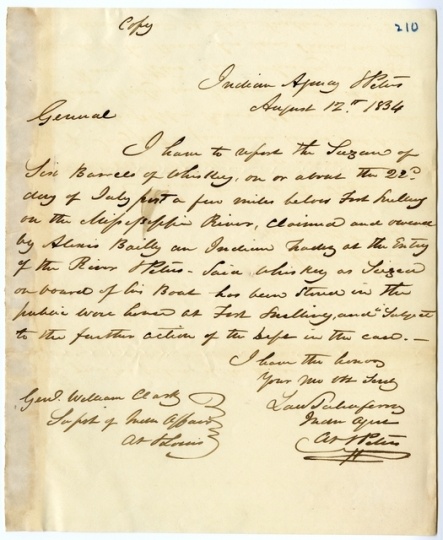 Copy
210
Indian Agency St Peters
August 12th 1834
General
I have to report the Seizure of
Six Barrels of Whiskey, on or about the 22d
day of July past a few miles below Fort Snelling
on the Mississippi River, Claimed and owned
by Alexis Bailly an Indian Trader at the Entry
of the River St Peters - Said Whiskey as Seized
on board of his Boat has been Stored in the
public ware house at Fort Snelling, and Subject
to the further action of the Dept in the case. —
I have the honor
Your Mo Ob Servt
Law Taliaferro
Indn Agent
At St Peters
Genl. William Clark
Supt of Indn Affairs
At St Louis